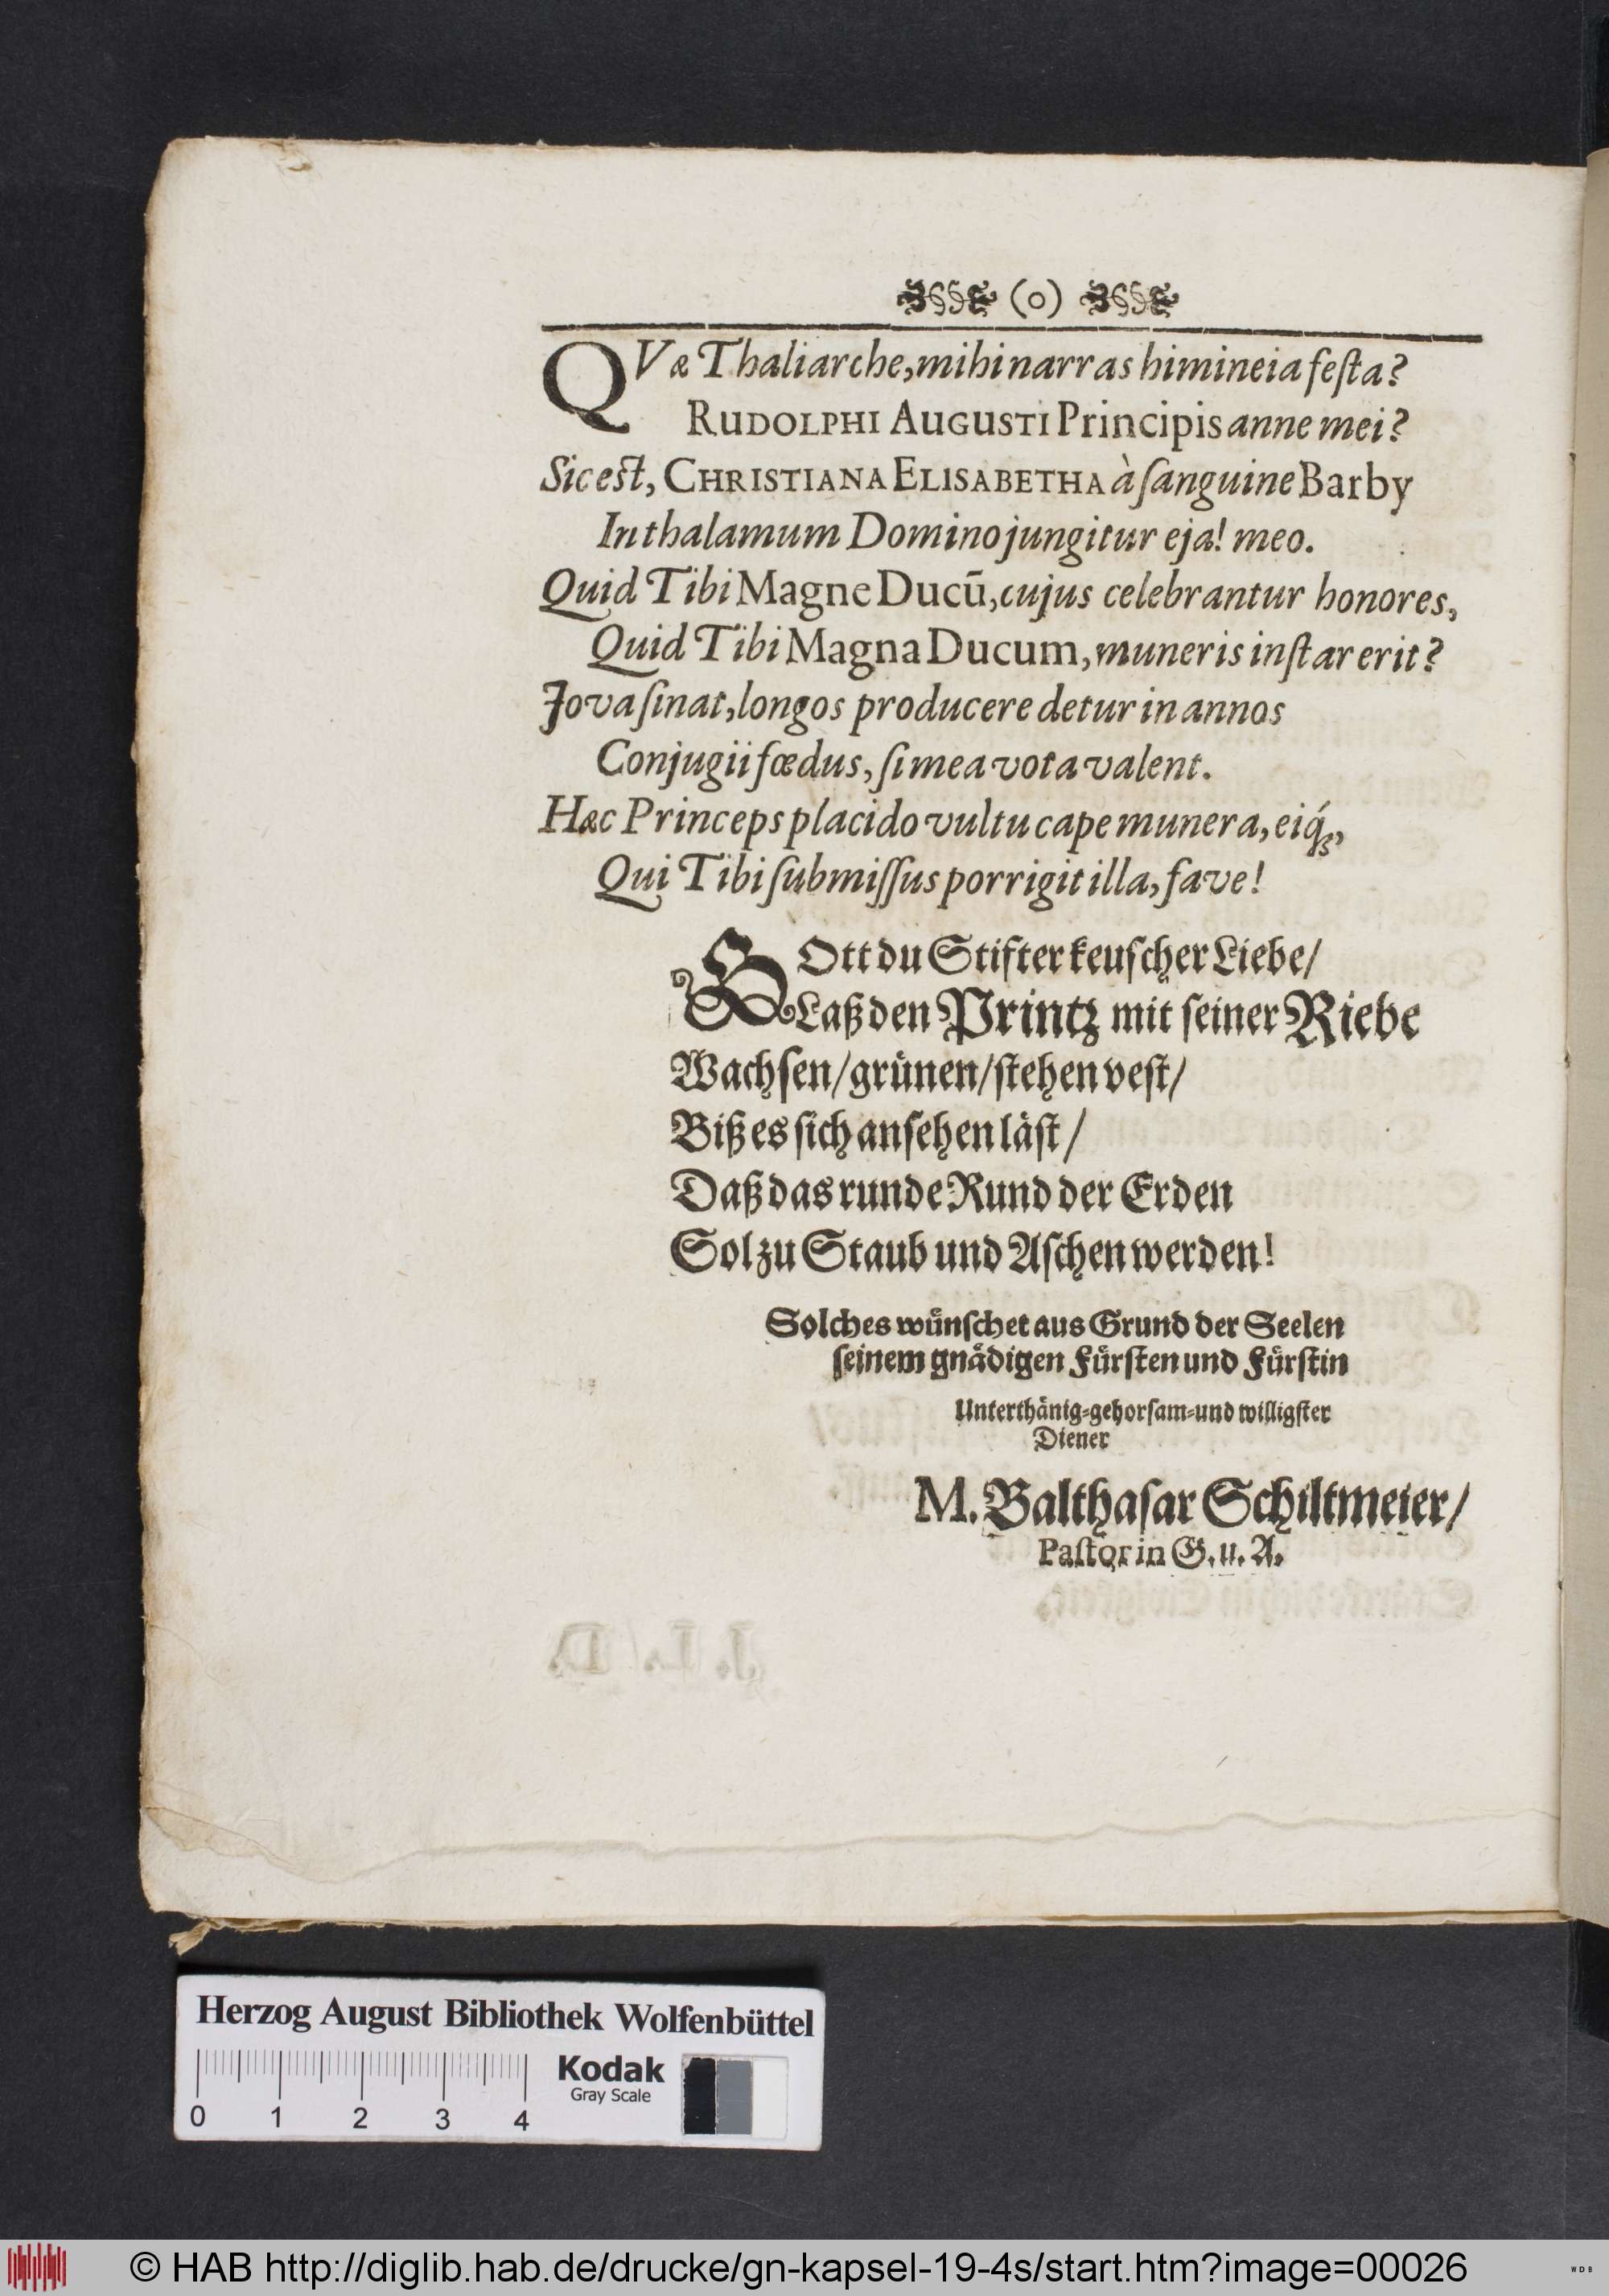 (o)
QVæ Thaliarche, mihi narras himineia feſta?
RuDOLPHI AuGusTI Principis anne mei?
Sic eſt, CHRISTIANA ELISABETHA à ſanguine Barby
In thalamum Domino jungitur eja! meo.
Quid Tibi Magne Ducū, cujus celebrantur honores,
Quid Tibi Magna Ducum, muneris inſtar erit?
Jova ſinat, longos producere detur in annos
Conjugii fœdus, ſi mea vota valent.
Hæc Princeps placido vultu cape munera, eiq́ꝫ,
Qui Tibi ſubmiſſus porrigit illa, fave!
GOtt du Stifter keuſcher Liebe/
Laß den Printz mit ſeiner Riebe
Wachſen/ grünen/ ſtehen veſt/
Biß es ſich anſehen läſt/
Daß das runde Rund der Erden
Sol zu Staub und Aſchen werden!
Solches wünſchet aus Grund der Seelen
ſeinem gnädigen Fürſten und Fürſtin
Unterthänig-gehorſam-und willigſter
Diener
M. Balthaſar Schiltmeier/
Paſtor in G. u. A.
Herzog August Bibliothek Wolfenbüttel
Kodak
Gray Scale
0 1 2 3 4
© HAB http://diglib.hab.de/drucke/gn-kapsel-19-4s/start.htm?image=00026
WDB